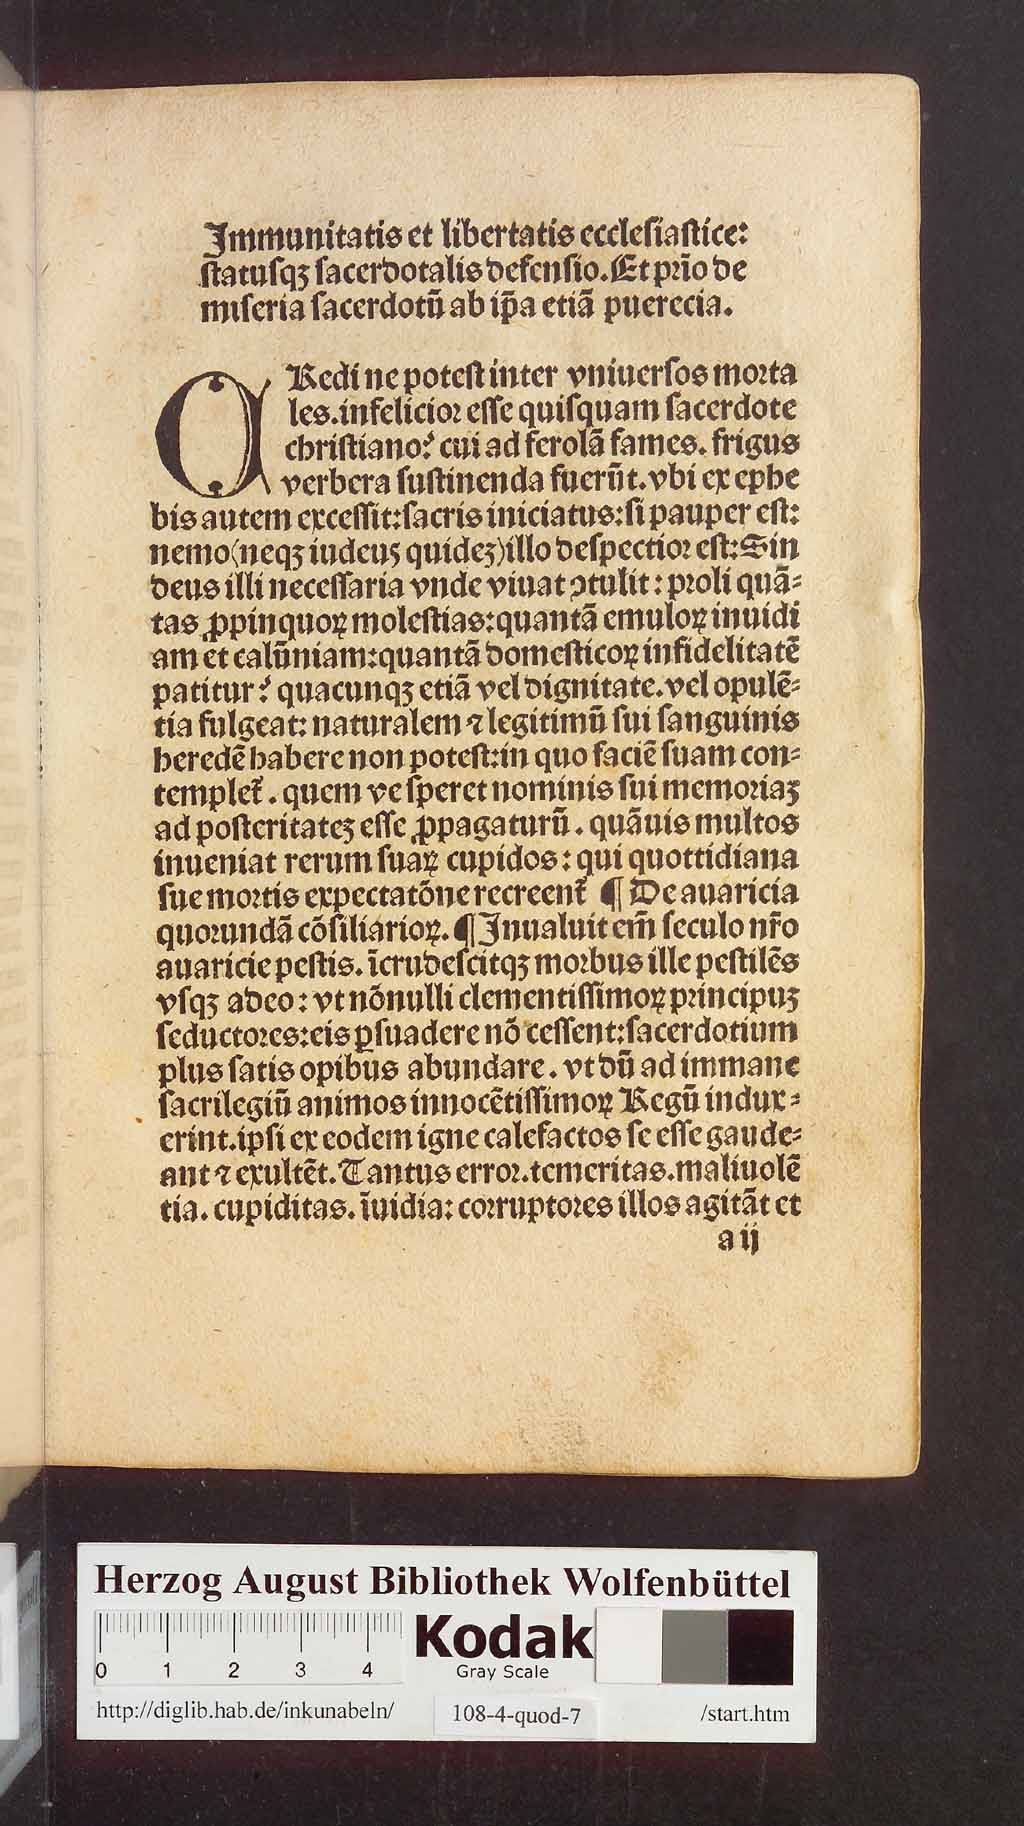 Immunitatis et libertatis ecclesiastice:
statusqꝫ sacerdotalis defensio. Et pr̄io de
miseria sacerdotū ab ip̄a etiā puerecia.
CRedi ne potest inter vniuersos morta
les. infelicior esse quisquam sacerdote
christiano? cui ad ferolā fames. frigus
verbera sustinenda fuerūt. vbi ex ephe
bis autem excessit: sacris iniciatus: si pauper est:
nemo (neqꝫ iudeus quideꝫ) illo despectior est: Sin
deus illi necessaria vnde viuat ꝯtulit: proli quā-
tas ꝓpinquoꝝ molestias: quantā emuloꝝ inuidi
am et calūniam: quantā domesticoꝝ infidelitatē
patitur? quacunqꝫ etiā vel dignitate. vel opulē-
tia fulgeat: naturalem ⁊ legitimū sui sanguinis
heredē habere non potest: in quo faciē suam con-
templet᷑. quem ve speret nominis sui memoriaꝫ
ad posteritateꝫ esse ꝓpagaturū. quāuis multos
inueniat rerum suaꝝ cupidos: qui quottidiana
sue mortis expectatōne recreent᷑ ¶ De auaricia
quorundā cōsiliarioꝝ. ¶ Inualuit em̄ seculo nr̄o
auaricie pestis. īcrudescitqꝫ morbus ille pestilēs
vsqꝫ adeo: vt nōnulli clementissimoꝝ principuꝫ
seductores: eis ꝑsuadere nō cessent: sacerdotium
plus satis opibus abundare. vt dū ad immane
sacrilegiū animos innocētissimoꝝ Regū indux-
erint. ipsi ex eodem igne calefactos se esse gaude-
ant ⁊ exultēt. Tantus error. temeritas. maliuolē
tia. cupiditas. īuidia: corruptores illos agitāt et
a ij
Herzog August Bibliothek Wolfenbüttel
0 1 2 3 4
Kodak
Gray Scale
http://diglib.hab.de/inkunabeln/ 108-4-quod-7 /start.htm